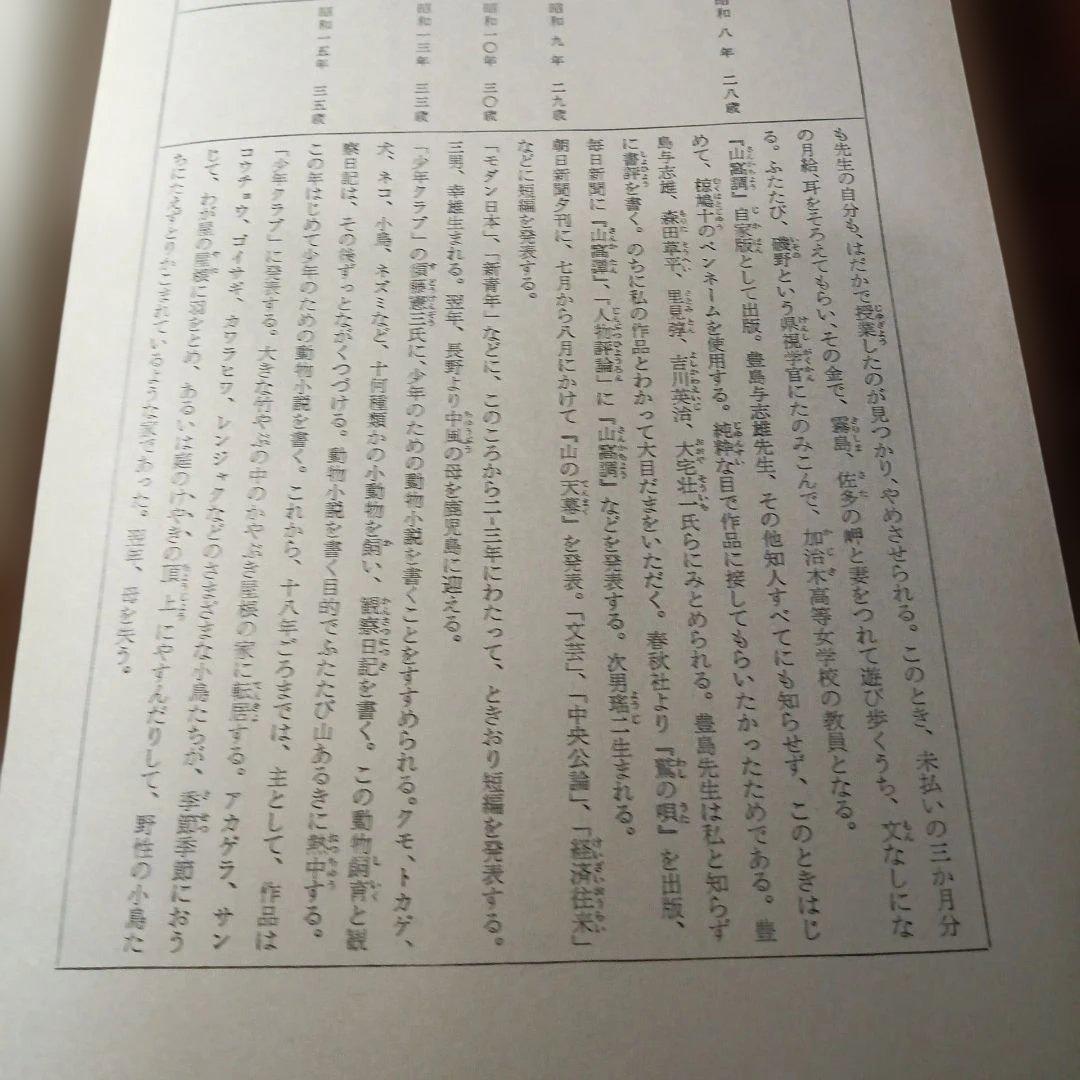 も先生の自分も、はだかで授業したのが見つかり、やめさせられる。このとき、未払いの三か月分
の月給、耳をそろえてもらい、その金で、霧島、佐多の岬と妻をつれて遊び歩くうち、文なしにな
る。ふたたび、磯野という県視学官にたのみこんで、加治木高等女学校の教員となる。
昭和八年 二八歳
『山窩調』自家版として出版。豊島与志雄先生、その他知人すべてにも知らせず、このときはじ
めて、椋鳩十のペンネームを使用する。純粋な目で作品に接してもらいたかったためである。豊
島与志雄、森田草平、里見弴、吉川英治、大宅壮一氏らにみとめられる。豊島先生は私と知らず
に書評を書く。のちに私の作品とわかって大目だまをいただく。春秋社より『鷲の唄』を出版、
毎日新聞に『山窩譚』、「人物評論」に『山窩調』などを発表する。次男瑤二生まれる。
昭和九年 二九歳
朝日新聞夕刊に、七月から八月にかけて『山の天幕』を発表。「文芸」、「中央公論」、「経済往来」
などに短編を発表する。
昭和一〇年 三〇歳
「モダン日本」、「新青年」などに、このころから二-三年にわたって、ときおり短編を発表する。
三男、幸雄生まれる。翌年、長野より中風の母を鹿児島に迎える。
昭和一三年 三三歳
「少年クラブ」の須藤憲三氏に、少年のための動物小説を書くことをすすめられる。クモ、トカゲ、
犬、ネコ、小鳥、ネズミなど、十何種類かの小動物を飼い、観察日記を書く。この動物飼育と観
察日記は、その後ずっとながくつづける。動物小説を書く目的でふたたび山あるきに熱中する。
昭和一五年 三五歳
この年はじめて少年のための動物小説を書く。これから、十八年ごろまでは、主として、作品は
「少年クラブ」に発表する。大きな竹やぶの中のかやぶき屋根の家に転居する。アカゲラ、サン
コウチョウ、ゴイサギ、カワラヒワ、レンジャクなどのさまざまな小鳥たちが、季節季節におう
じて、わが屋の屋根に羽をとめ、あるいは庭のけやきの頂上にやすんだりして、野性の小鳥た
ちにたえずとりかこまれているような家であった。翌年、母を失う。